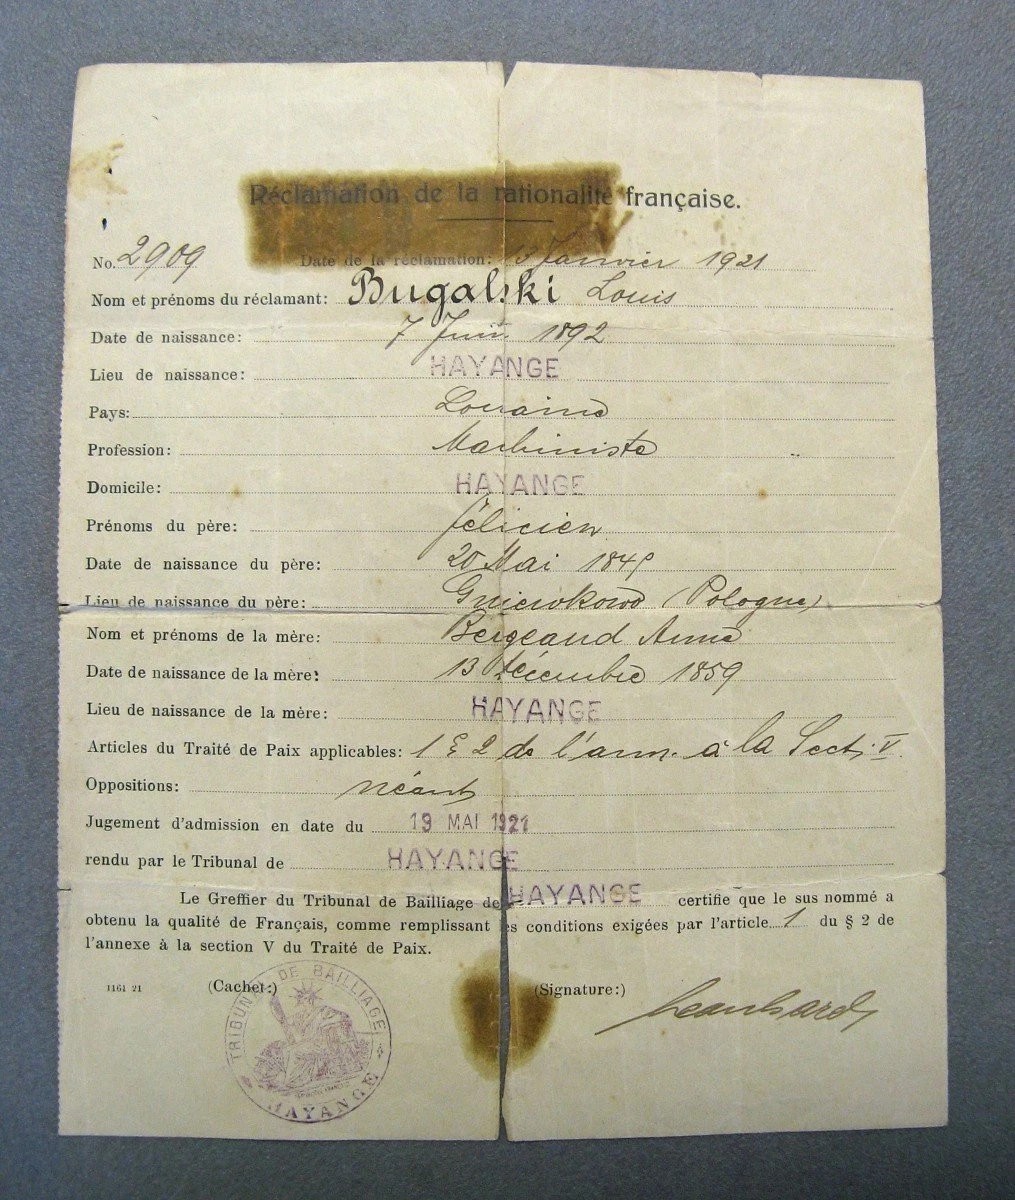 Réclamation de la nationalité française.
No. 2909 Date de la réclamation: Janvier 1921
Nom et prénoms du réclamant: Bugalski Louis
Date de naissance: 7 Juin 1892
Lieu de naissance: HAYANGE
Pays: Lorraine
Profession: Machiniste
Domicile: HAYANGE
Prénoms du père: Félicien
Date de naissance du père: 20 Mai
Lieu de naissance du père: Gniewkowo (Pologne)
Nom et prénoms de la mère: Bergeaud Anne
Date de naissance de la mère: 13 décembre 1859
Lieu de naissance de la mère: HAYANGE
Articles du Traité de Paix applicables: 1 & 2 de l'ann. à la Sect. V.
Oppositions: néant
Jugement d'admission en date du 19 MAI 1921
rendu par le Tribunal de HAYANGE
Le Greffier du Tribunal de Bailliage de HAYANGE certifie que le sus nommé a
obtenu la qualité de Français, comme remplissant les conditions exigées par l'article 1 du § 2 de
l'annexe à la section V du Traité de Paix.
1161 21 (Cachet:) (Signature:)
TRIBUNAL DE BAILLIAGE
HAYANGE